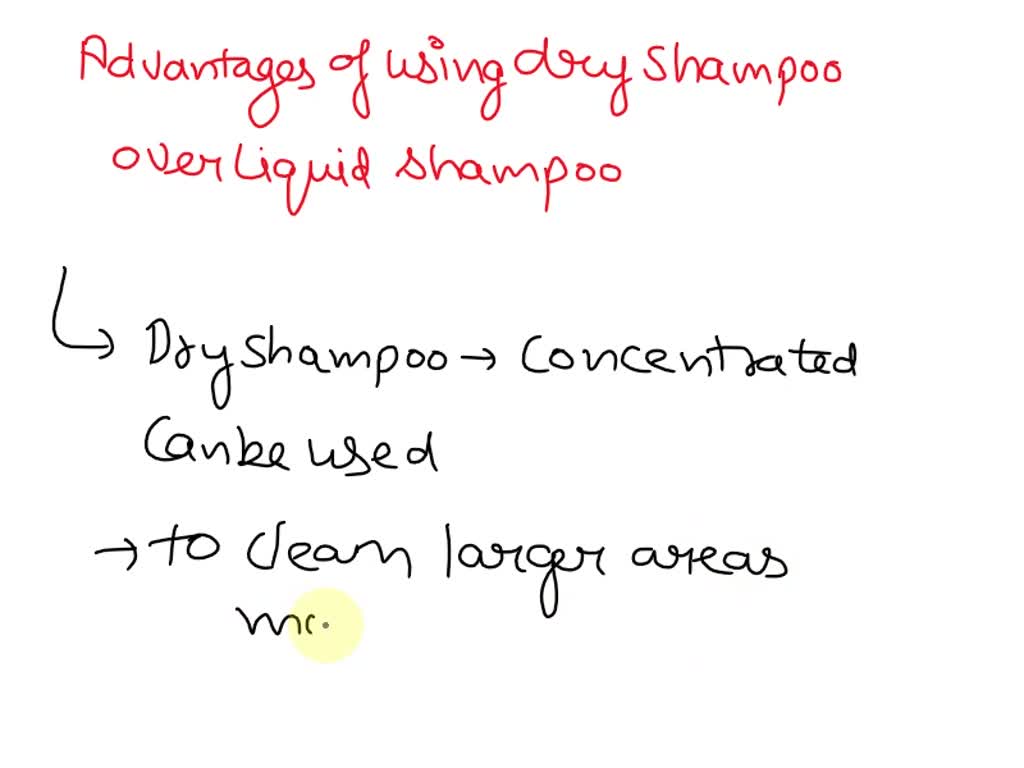 Advantages of using dry shampoo
over Liquid shampoo
↳ Dry shampoo → Concentrated
Can be used
→ to clean larger areas